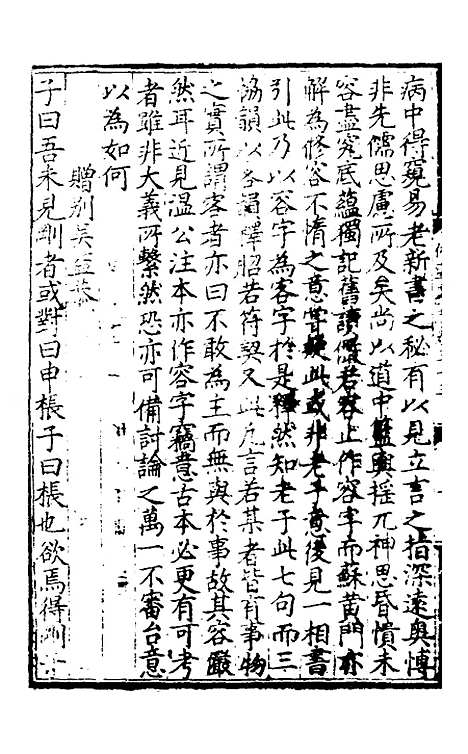 病中得窺易老新書之秘有以見立言之指深遠奧博
非先儒思慮所及矣尚以道中籃輿搖兀神思昏憒未
容盡究底蘊獨記舊讀儼若容止作容字而蘇黃門亦
解為修容不惰之意嘗疑此或非老子意後見一相書
引此乃以容字為客字於是釋然知老子此七句而三
協韻以客韻釋脗若符契又此凡言若某者皆有事物
之實所謂客者亦曰不敢為主而無與於事故其容儼
然耳近見溫公注本亦作容字竊意古本必更有可考
者雖非大義所繫然恐亦可備討論之萬一不審台意
以為如何
贈別吳
子曰吾未見剛者或對曰申棖子曰棖也欲焉得剛